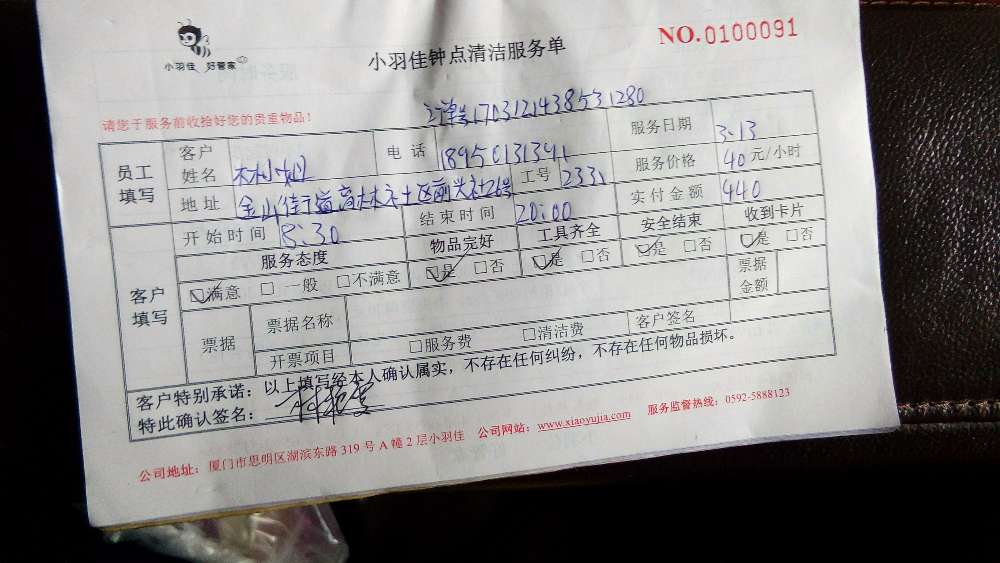 小羽佳 好管家
小羽佳钟点清洁服务单
NO.0100091
请您于服务前收拾好您的贵重物品!
订单号1703121438531280
员工填写
客户姓名 林小姐 电话 18950131341 服务日期 3.13
地址 金山街道高林社区前头社26号 工号 2331 服务价格 40元/小时
开始时间 8:30 结束时间 20:00 实付金额 440
客户填写
服务态度 物品完好 工具齐全 安全结束 收到卡片
☑满意 □ 一般 □不满意 ☑是 □否 ☑是 □否 ☑是 □否 ☑是 □否
票据 票据名称 票据金额
开票项目 □服务费 □清洁费 客户签名
客户特别承诺:以上填写经本人确认属实,不存在任何纠纷,不存在任何物品损坏。
特此确认签名:
公司地址:厦门市思明区湖滨东路319号A幢2层小羽佳 公司网站:www.xiaoyujia.com 服务监督热线:0592-5888123